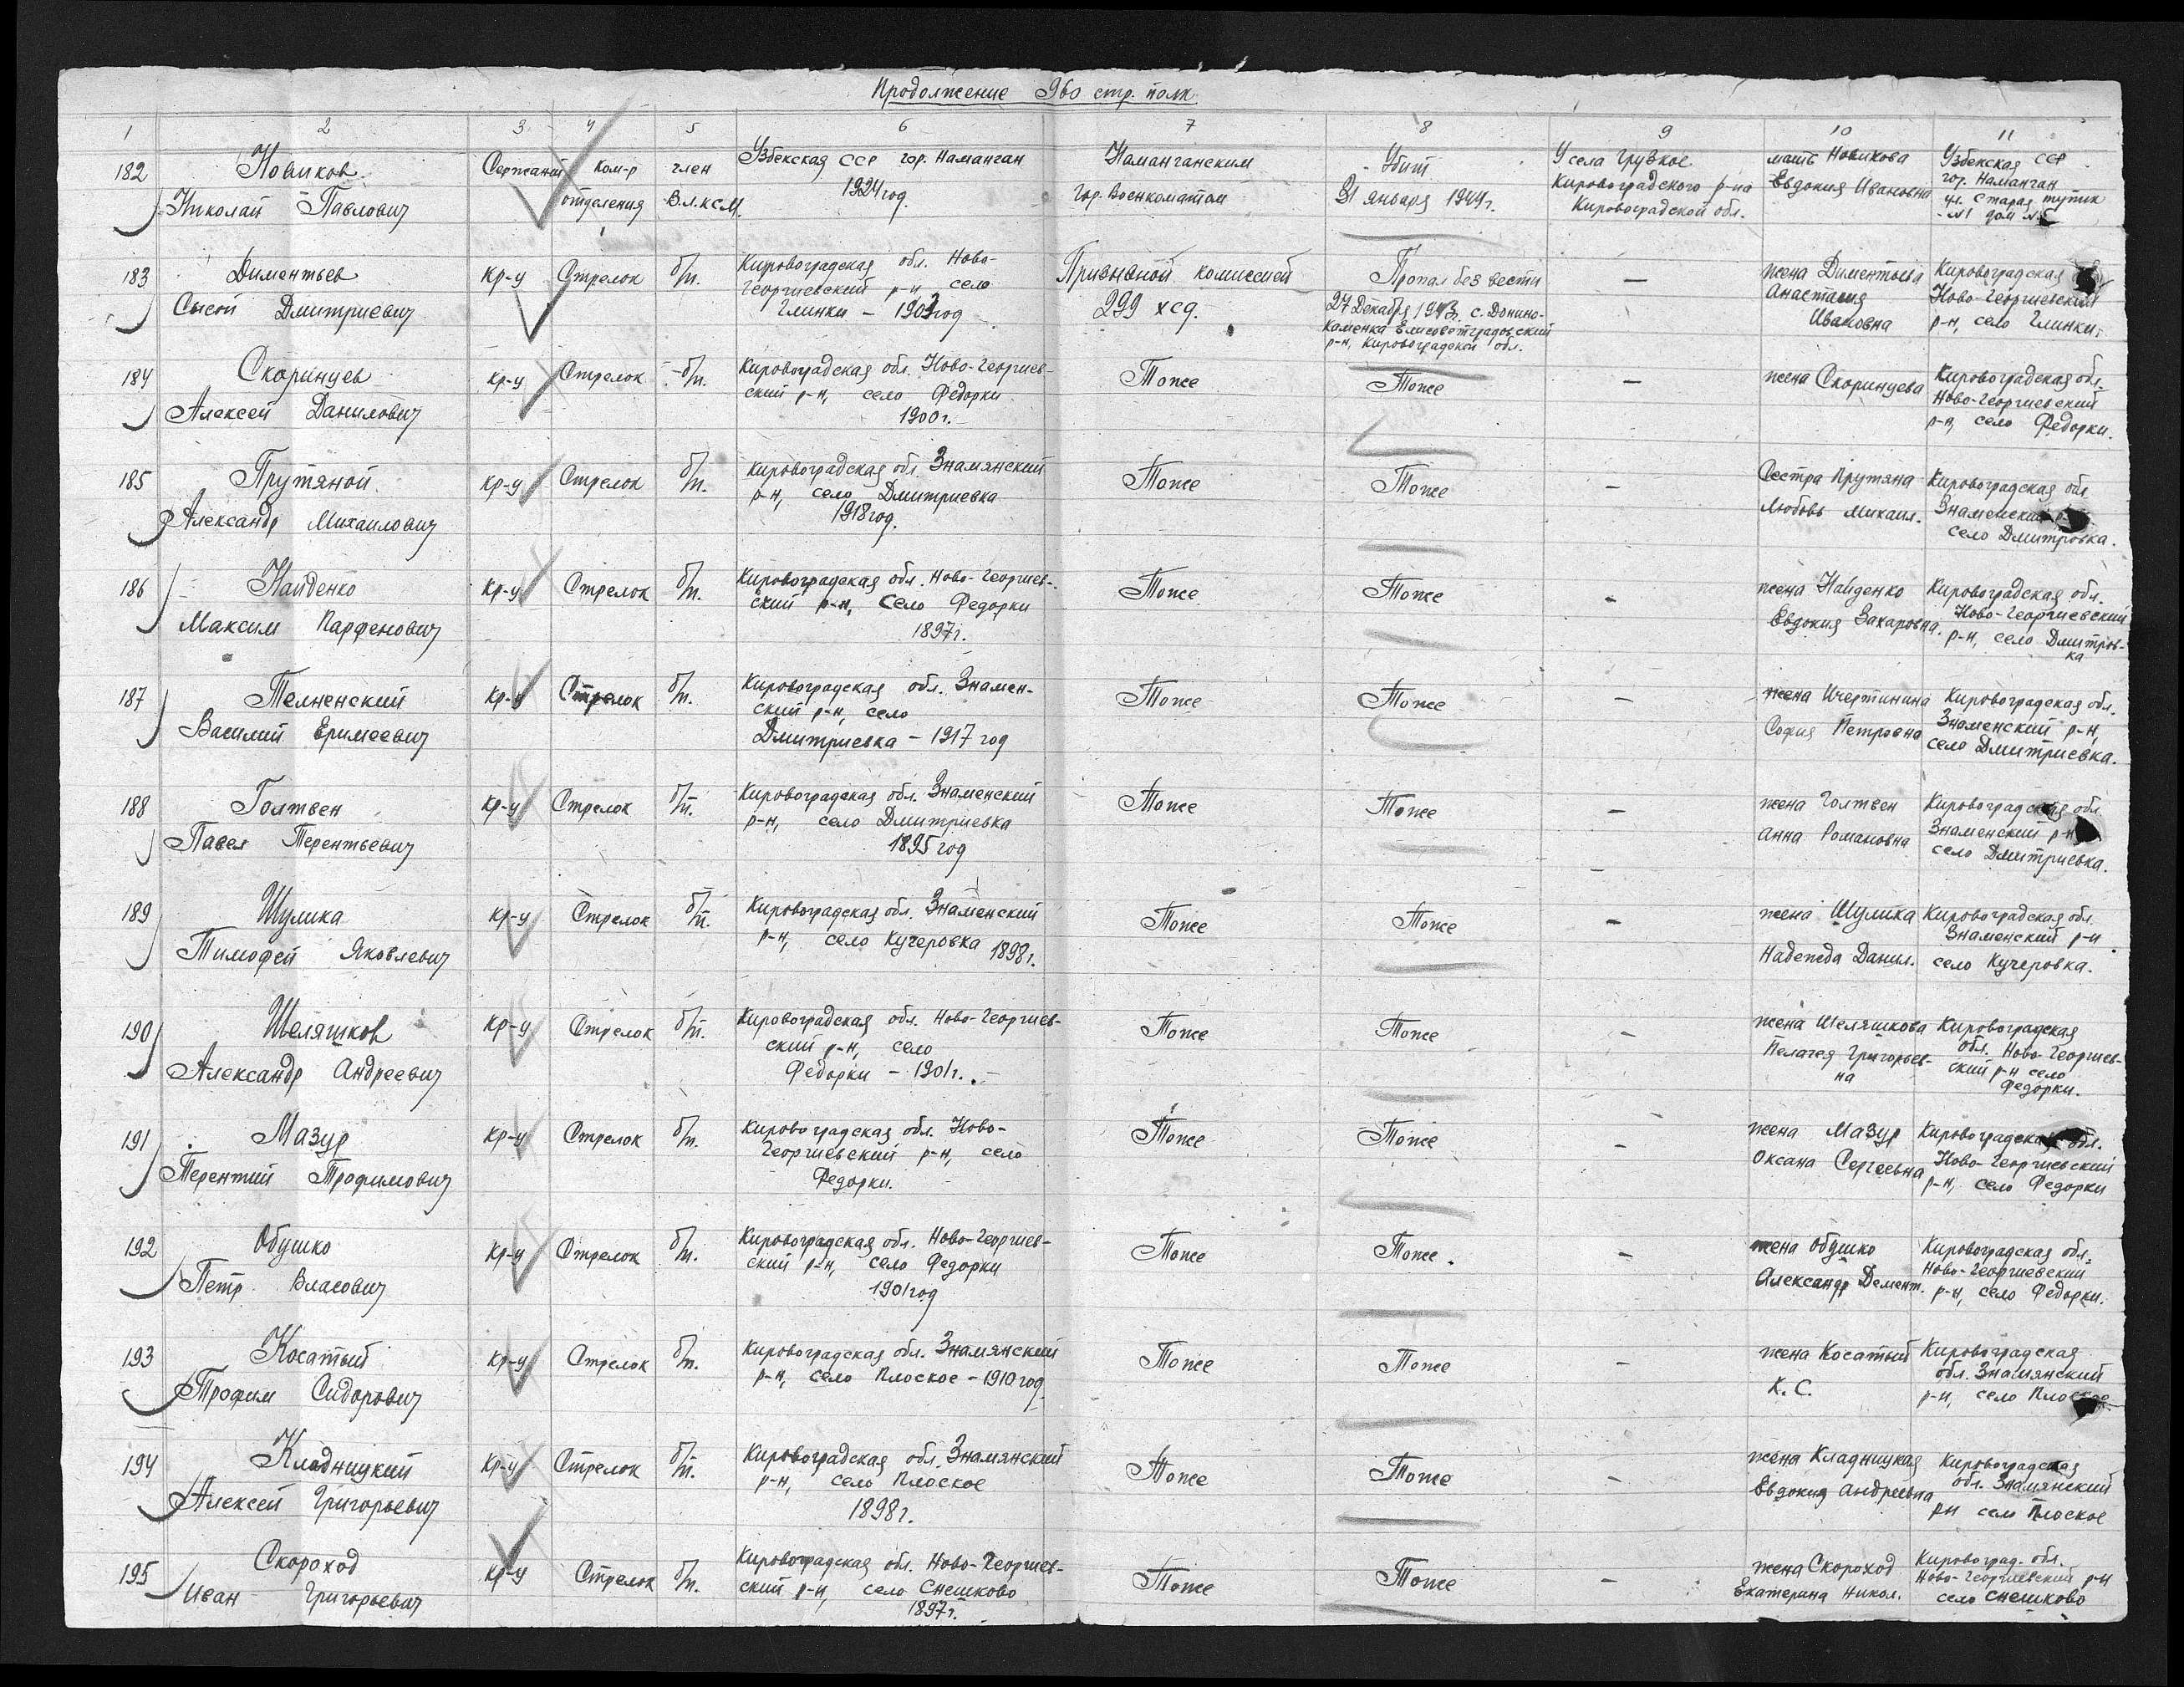 Продолжение 960 стр. полк.
1 2 3 4 5 6 7 8 9 10 11
182 Новиков Сержант ком-р член Узбекская ССР гор. Наманган Наманганским Убит У села Грузкое мать Новикова Узбекская ССР
Николай Павлович отделения В.Л.К.С.М. 1924 год. гор. Военкоматом 31 января 1944г. Кировоградского р-на Евдокия Ивановна гор. Наманган
Кировоградской обл. ул. Старая тупик
№1 дом
183 Диментьев кр-ц Стрелок б/п. Кировоградская обл. Ново- Призывной комиссией Пропал без вести — жена Диментьева Кировоградская
Сысой Дмитриевич Георгиевский р-н село 299 хсд. 27 Декабря 1943. с. Донино- Анастасия Ново-Георгиевский
Глинки – 1903 год Каменка Елисоветградовский Ивановна р-н, село Глинки.
р-н, Кировоградской обл.
184 Скоринцев кр-ц Стрелок б/п. Кировоградская обл. Ново-Георгиев- Тоже Тоже — жена Скоринцева Кировоградская обл.
Алексей Данилович ский р-н, село Федорки Ново-Георгиевский
1900г. р-н, село Федорки.
185 Прутяной кр-ц Стрелок б/п. Кировоградская обл. Знамянский Тоже Тоже — Сестра Прутяна Кировоградская обл
Александр Михаилович р-н, село Дмитриевка Любовь Михаил. Знаменский
1918 год. село Дмитровка.
186 Найденко кр-ц Стрелок б/п. Кировоградская обл. Ново-Георгиев- Тоже Тоже — жена Найденко Кировоградская обл.
Максим Парфенович ский р-н, село Федорки Евдокия Захаровна. Ново-Георгиевский
1897г. р-н, село Дмитров-
ка
187 Телненский кр-ц Стрелок б/п. Кировоградская обл. Знамен- Тоже Тоже — жена Кировоградская обл.
Василий Еримеевич ский р-н, село София Петровна Знаменский р-н,
Дмитриевка – 1917 год село Дмитриевка.
188 Голтвен кр-ц Стрелок б/п. Кировоградская обл. Знаменский Тоже Тоже — жена Голтвен Кировоградская обл
Павел Терентьевич р-н, село Дмитриевка Анна Романовна Знаменский р-н
1895 год село Дмитриевка.
189 Шулика кр-ц Стрелок б/п. Кировоградская обл. Знаменский Тоже Тоже — жена Шулика Кировоградская обл.
Тимофей Яковлевич р-н, село Кучеровка 1898г. Надежда Данил. Знаменский р-н
село Кучеровка.
190 Шеляшков кр-ц Стрелок б/п. Кировоградская обл. Ново-Георгиев- Тоже Тоже — жена Шеляшкова Кировоградская
Александр Андреевич ский р-н, село Пелагея Григорьев- обл. Ново-Георгиев-
Федорки – 1901г. на ский р-н село
Федорки.
191 Мазур кр-ц Стрелок б/п. Кировоградская обл. Ново- Тоже Тоже — жена Мазур Кировоградская обл.
Терентий Трофимович Георгиевский р-н, село Оксана Сергеевна Ново-Георгиевский
Федорки. р-н, село Федорки
192 Обушко кр-ц Стрелок б/п. Кировоградская обл. Ново-Георгиев- Тоже Тоже. — жена Обушко Кировоградская обл.
Петр Власович ский р-н, село Федорки Александр Демент. Ново-Георгиевский
1901 год р-н, село Федорки.
193 Косатый кр-ц Стрелок б/п. Кировоградская обл. Знамянский Тоже Тоже — жена Косатый Кировоградская
Трофим Сидорович р-н, село Плоское – 1910 год К. С. обл. Знамянский
р-н, село Плоское
194 Кладницкий кр-ц Стрелок б/п. Кировоградская обл. Знамянский Тоже Тоже — жена Кладницкая Кировоградская
Алексей Григорьевич р-н, село Плоское Евдокия Андреевна обл. Знамянский
1898г. рн село Плоское
195 Скороход кр-ц Стрелок б/п. Кировоградская обл. Ново-Георгиев- Тоже Тоже — жена Скороход Кировоград. обл.
Иван Григорьевич ский р-н, село Снешково Екатерина Никол. Ново-Георгиевский р-н
1897г. село Снешково